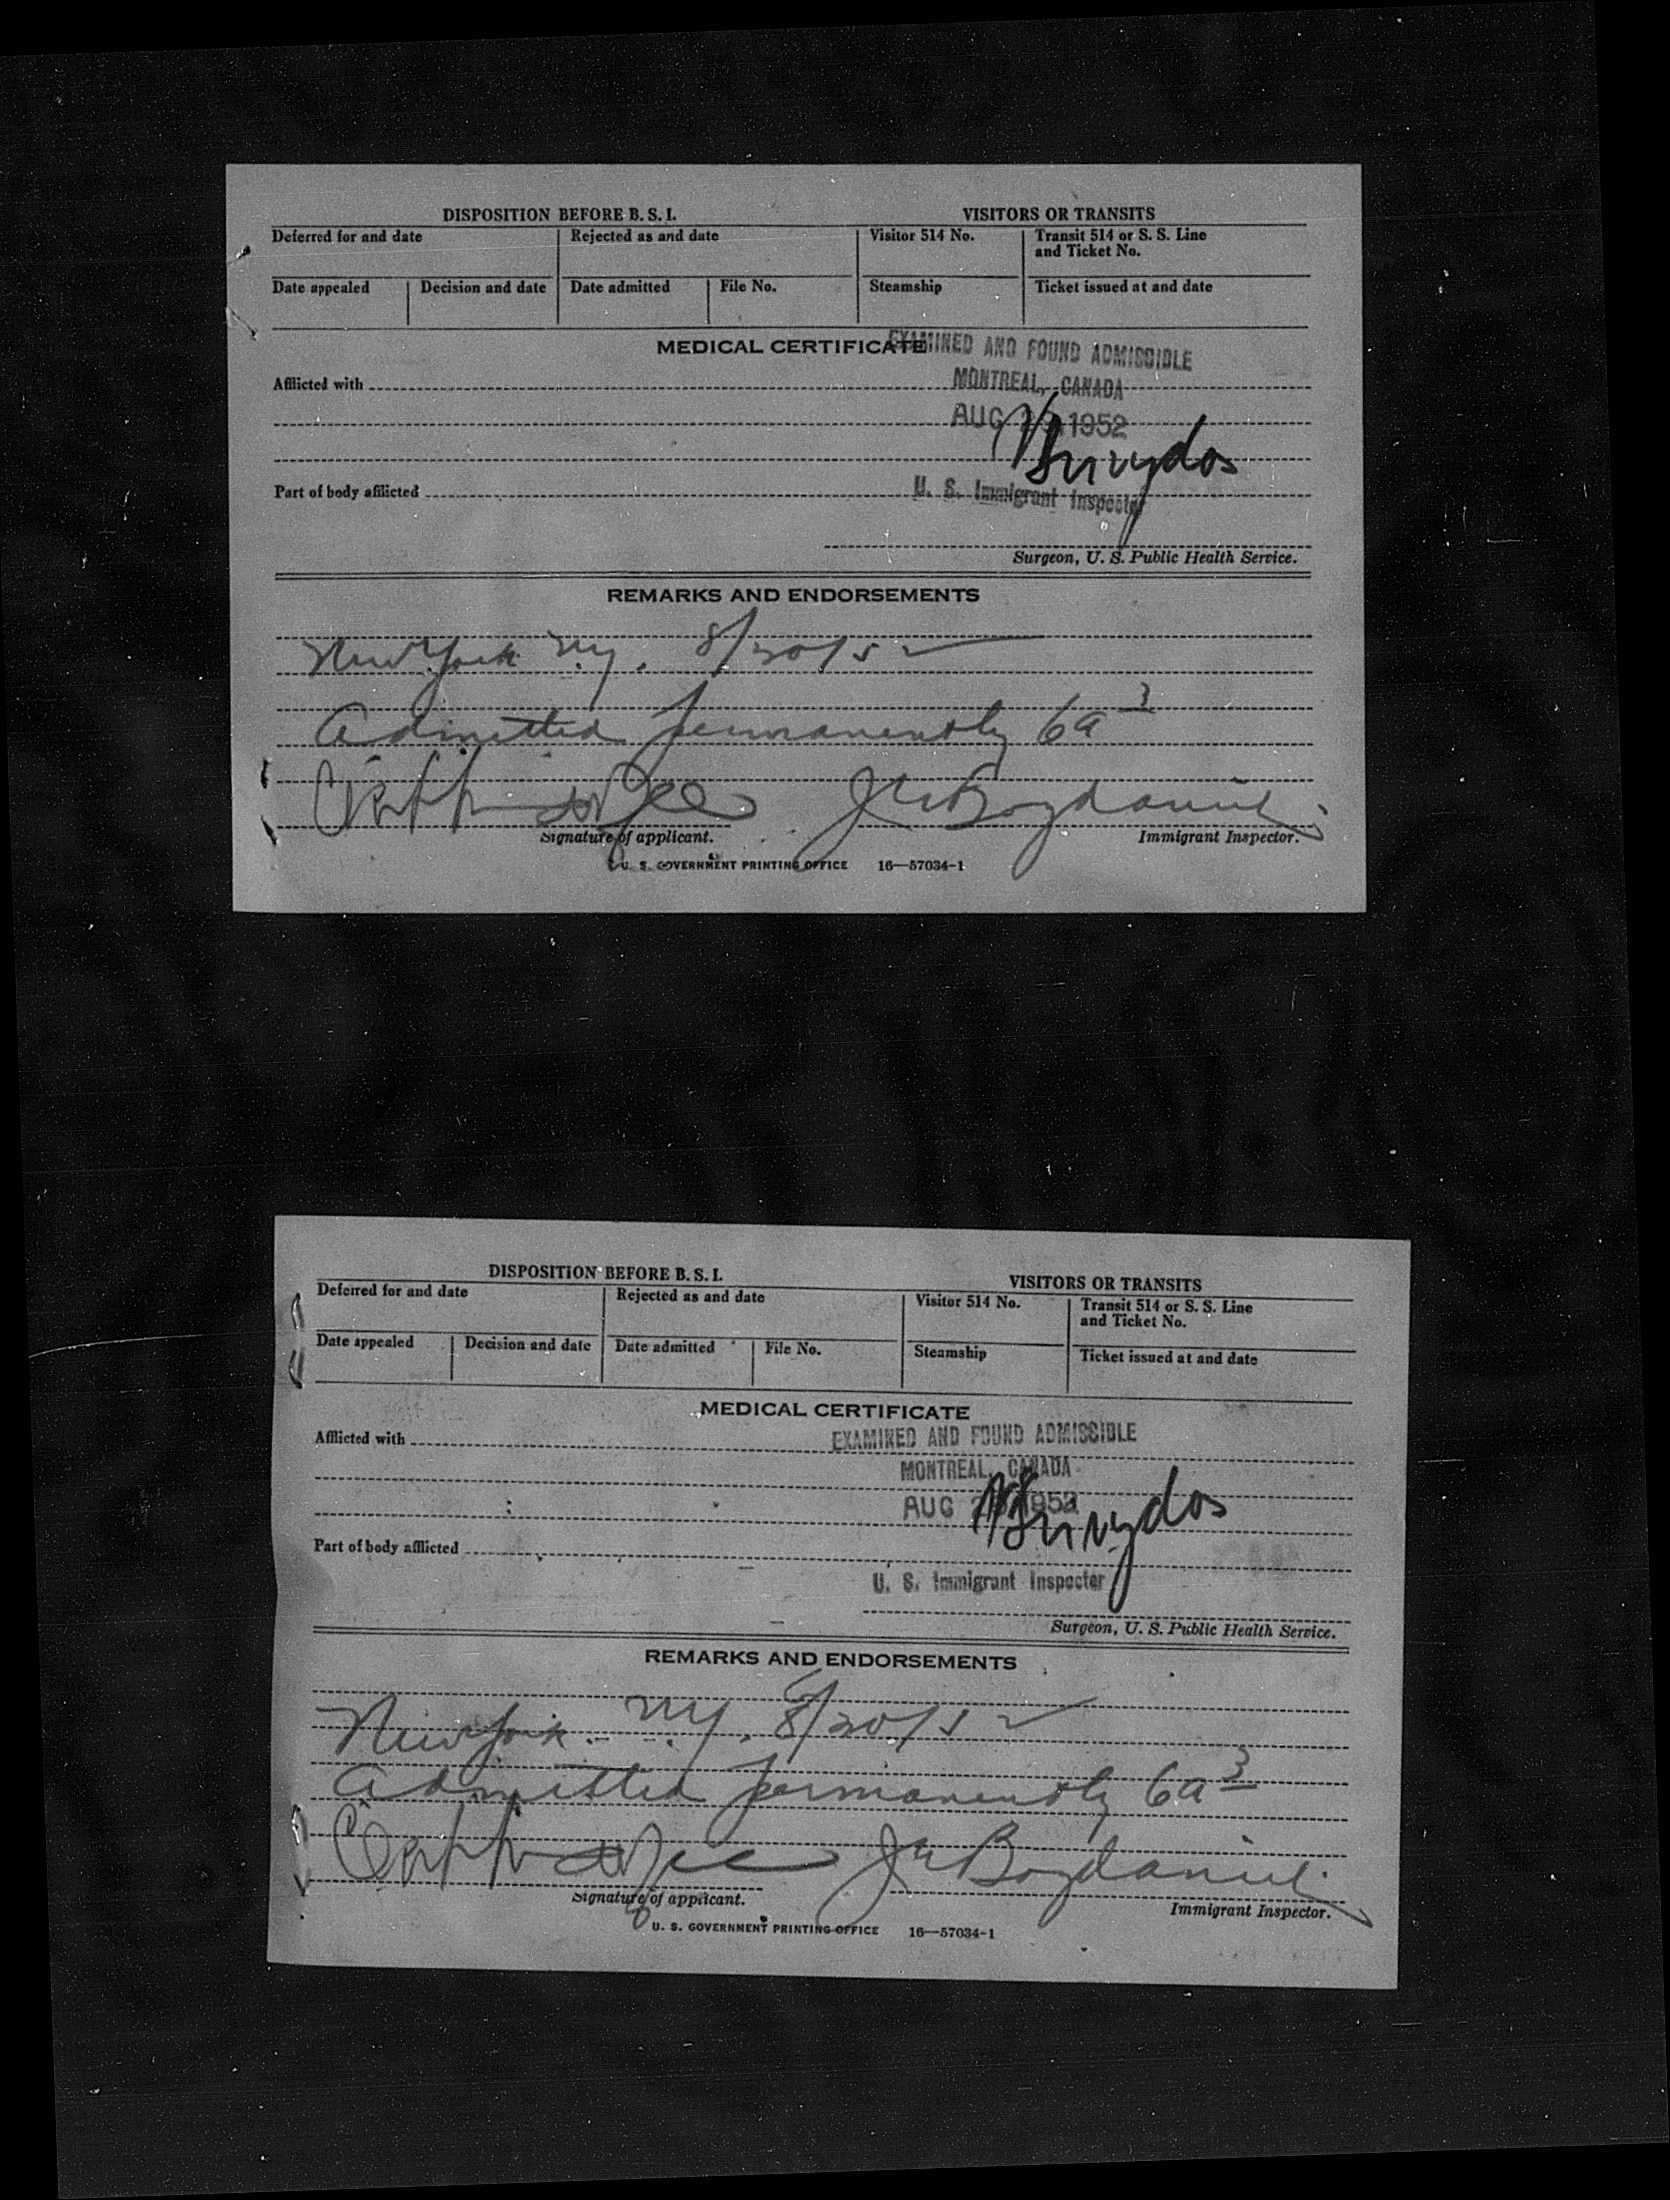 DISPOSITION BEFORE B. S. I.
VISITORS OR TRANSITS
Deferred for and date
Rejected as and date
Visitor 514 No.
Transit 514 or S. S. Line
and Ticket No.
Date appealed
Decision and date
Date admitted
File No.
Steamship
Ticket issued at and date
MEDICAL CERTIFICATE
EXAMINED AND FOUND ADMISSIBLE
Afflicted with
MONTREAL, CANADA
AUG 1952
Part of body afflicted
U. S. Immigrant Inspector
Surgeon, U. S. Public Health Service.
REMARKS AND ENDORSEMENTS
New York NY. 8/20/52
Admitted permanently 6a3
Signature of applicant.
Immigrant Inspector.
U. S. GOVERNMENT PRINTING OFFICE 16—57034-1
DISPOSITION BEFORE B. S. I.
VISITORS OR TRANSITS
Deferred for and date
Rejected as and date
Visitor 514 No.
Transit 514 or S. S. Line
and Ticket No.
Date appealed
Decision and date
Date admitted
File No.
Steamship
Ticket issued at and date
MEDICAL CERTIFICATE
Afflicted with
EXAMINED AND FOUND ADMISSIBLE
MONTREAL, CANADA
AUG 1952
Part of body afflicted
U. S. Immigrant Inspector
Surgeon, U. S. Public Health Service.
REMARKS AND ENDORSEMENTS
New York NY. 8/20/52
Admitted permanently 6a3
Signature of applicant.
Immigrant Inspector.
U. S. GOVERNMENT PRINTING OFFICE 16—57034-1